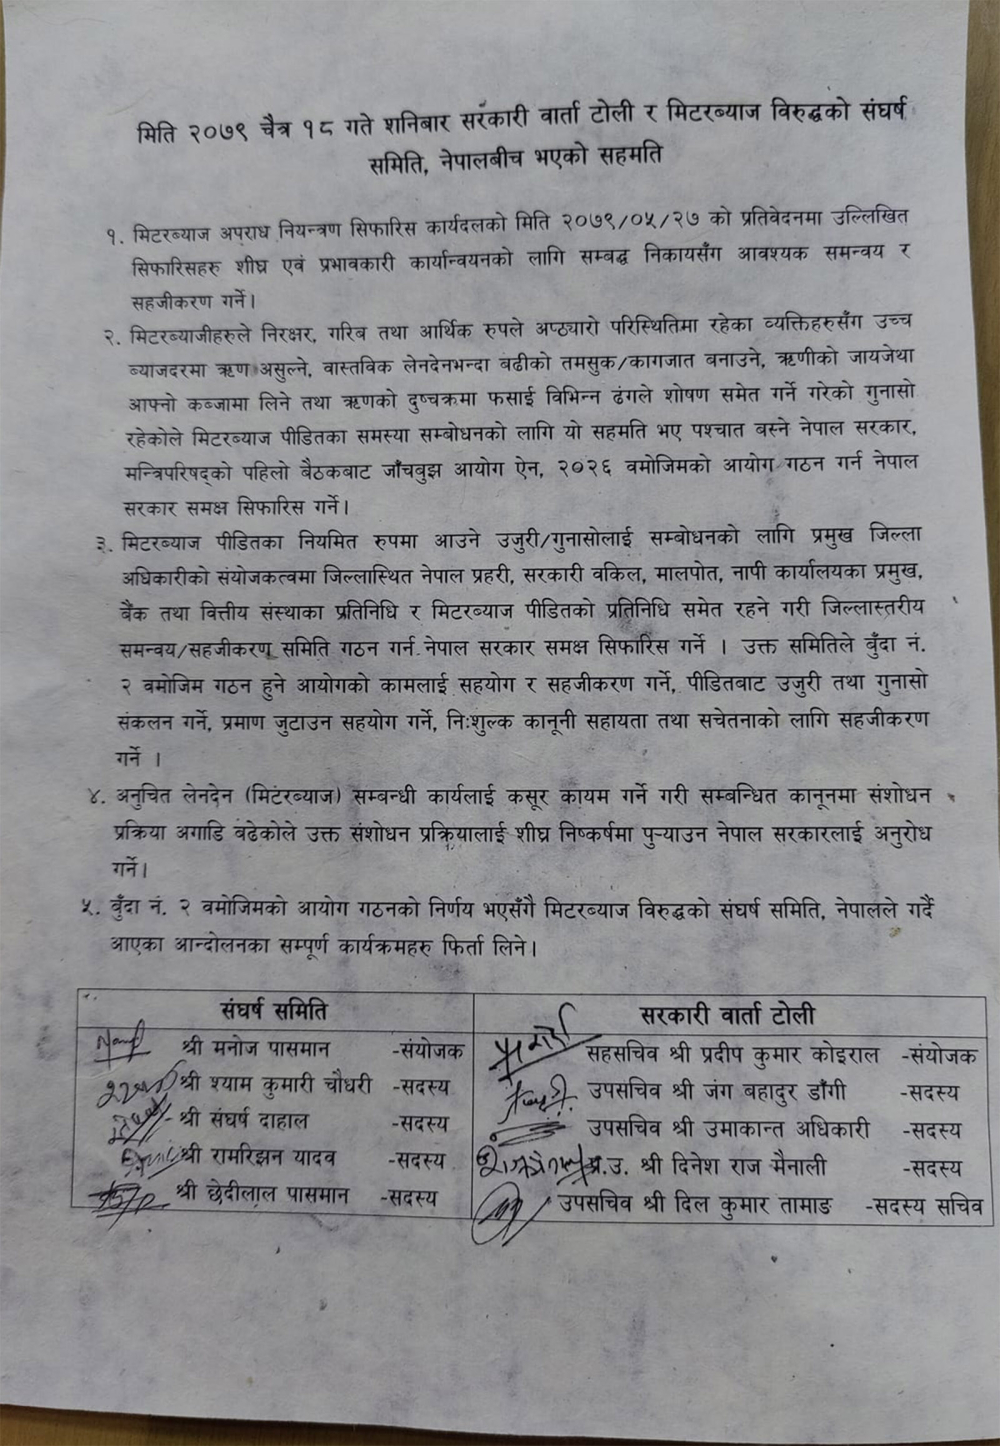 मिति २०७९ चैत्र १८ गते शनिबार सरकारी वार्ता टोली र मिटरब्याज विरुद्धको संघर्ष
समिति, नेपालबीच भएको सहमति
१. मिटरब्याज अपराध नियन्त्रण सिफारिस कार्यदलको मिति २०७९/०५/२७ को प्रतिवेदनमा उल्लिखित
सिफारिसहरु शीघ्र एवं प्रभावकारी कार्यान्वयनको लागि सम्बद्ध निकायसँग आवश्यक समन्वय र
सहजीकरण गर्ने।
२. मिटरब्याजीहरुले निरक्षर, गरिब तथा आर्थिक रुपले अप्ठ्यारो परिस्थितिमा रहेका व्यक्तिहरुसँग उच्च
ब्याजदरमा ऋण असुल्ने, वास्तविक लेनदेनभन्दा बढीको तमसुक/कागजात बनाउने, ऋणीको जायजेथा
आफ्नो कब्जामा लिने तथा ऋणको दुष्चक्रमा फसाई विभिन्न ढंगले शोषण समेत गर्ने गरेको गुनासो
रहेकोले मिटरब्याज पीडितका समस्या सम्बोधनको लागि यो सहमति भए पश्चात बस्ने नेपाल सरकार,
मन्त्रिपरिषद्को पहिलो बैठकबाट जाँचबुझ आयोग ऐन, २०२६ वमोजिमको आयोग गठन गर्न नेपाल
सरकार समक्ष सिफारिस गर्ने।
३. मिटरब्याज पीडितका नियमित रुपमा आउने उजुरी/गुनासोलाई सम्बोधनको लागि प्रमुख जिल्ला
अधिकारीको संयोजकत्वमा जिल्लास्थित नेपाल प्रहरी, सरकारी वकिल, मालपोत, नापी कार्यालयका प्रमुख,
बैंक तथा वित्तीय संस्थाका प्रतिनिधि र मिटरब्याज पीडितको प्रतिनिधि समेत रहने गरी जिल्लास्तरीय
समन्वय/सहजीकरण समिति गठन गर्न नेपाल सरकार समक्ष सिफारिस गर्ने । उक्त समितिले बुँदा नं.
२ वमोजिम गठन हुने आयोगको कामलाई सहयोग र सहजीकरण गर्ने, पीडितबाट उजुरी तथा गुनासो
संकलन गर्ने, प्रमाण जुटाउन सहयोग गर्ने, निःशुल्क कानूनी सहायता तथा सचेतनाको लागि सहजीकरण
गर्ने ।
४. अनुचित लेनदेन (मिटरब्याज) सम्बन्धी कार्यलाई कसूर कायम गर्ने गरी सम्बन्धित कानूनमा संशोधन
प्रक्रिया अगाडि बढेकोले उक्त संशोधन प्रक्रियालाई शीघ्र निष्कर्षमा पुर्‍याउन नेपाल सरकारलाई अनुरोध
गर्ने।
५. बुँदा नं. २ वमोजिमको आयोग गठनको निर्णय भएसँगै मिटरब्याज विरुद्धको संघर्ष समिति, नेपालले गर्दै
आएका आन्दोलनका सम्पूर्ण कार्यक्रमहरु फिर्ता लिने।
संघर्ष समिति
श्री मनोज पासमान -संयोजक
श्री श्याम कुमारी चौधरी -सदस्य
श्री संघर्ष दाहाल -सदस्य
श्री रामरिझन यादव -सदस्य
श्री छेदीलाल पासमान -सदस्य
सरकारी वार्ता टोली
सहसचिव श्री प्रदीप कुमार कोइराल -संयोजक
उपसचिव श्री जंग बहादुर डाँगी -सदस्य
उपसचिव श्री उमाकान्त अधिकारी -सदस्य
प्र.उ. श्री दिनेश राज मैनाली -सदस्य
उपसचिव श्री दिल कुमार तामाङ -सदस्य सचिव